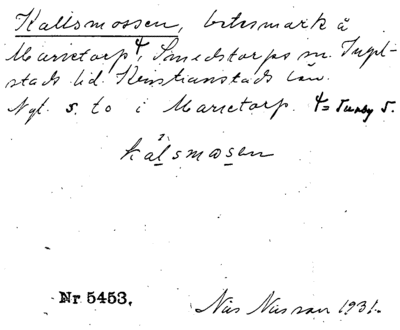 Kallsmossen, betesmark å
Marietorp ϥ, Smedstorps sn. Ingel-
stads hd Kristianstads län.
Nyl. s. to i Marietorp. ϥ= Tunby 5.
kalsmosen
Nr 5453.
Nils Nilsson 1931.